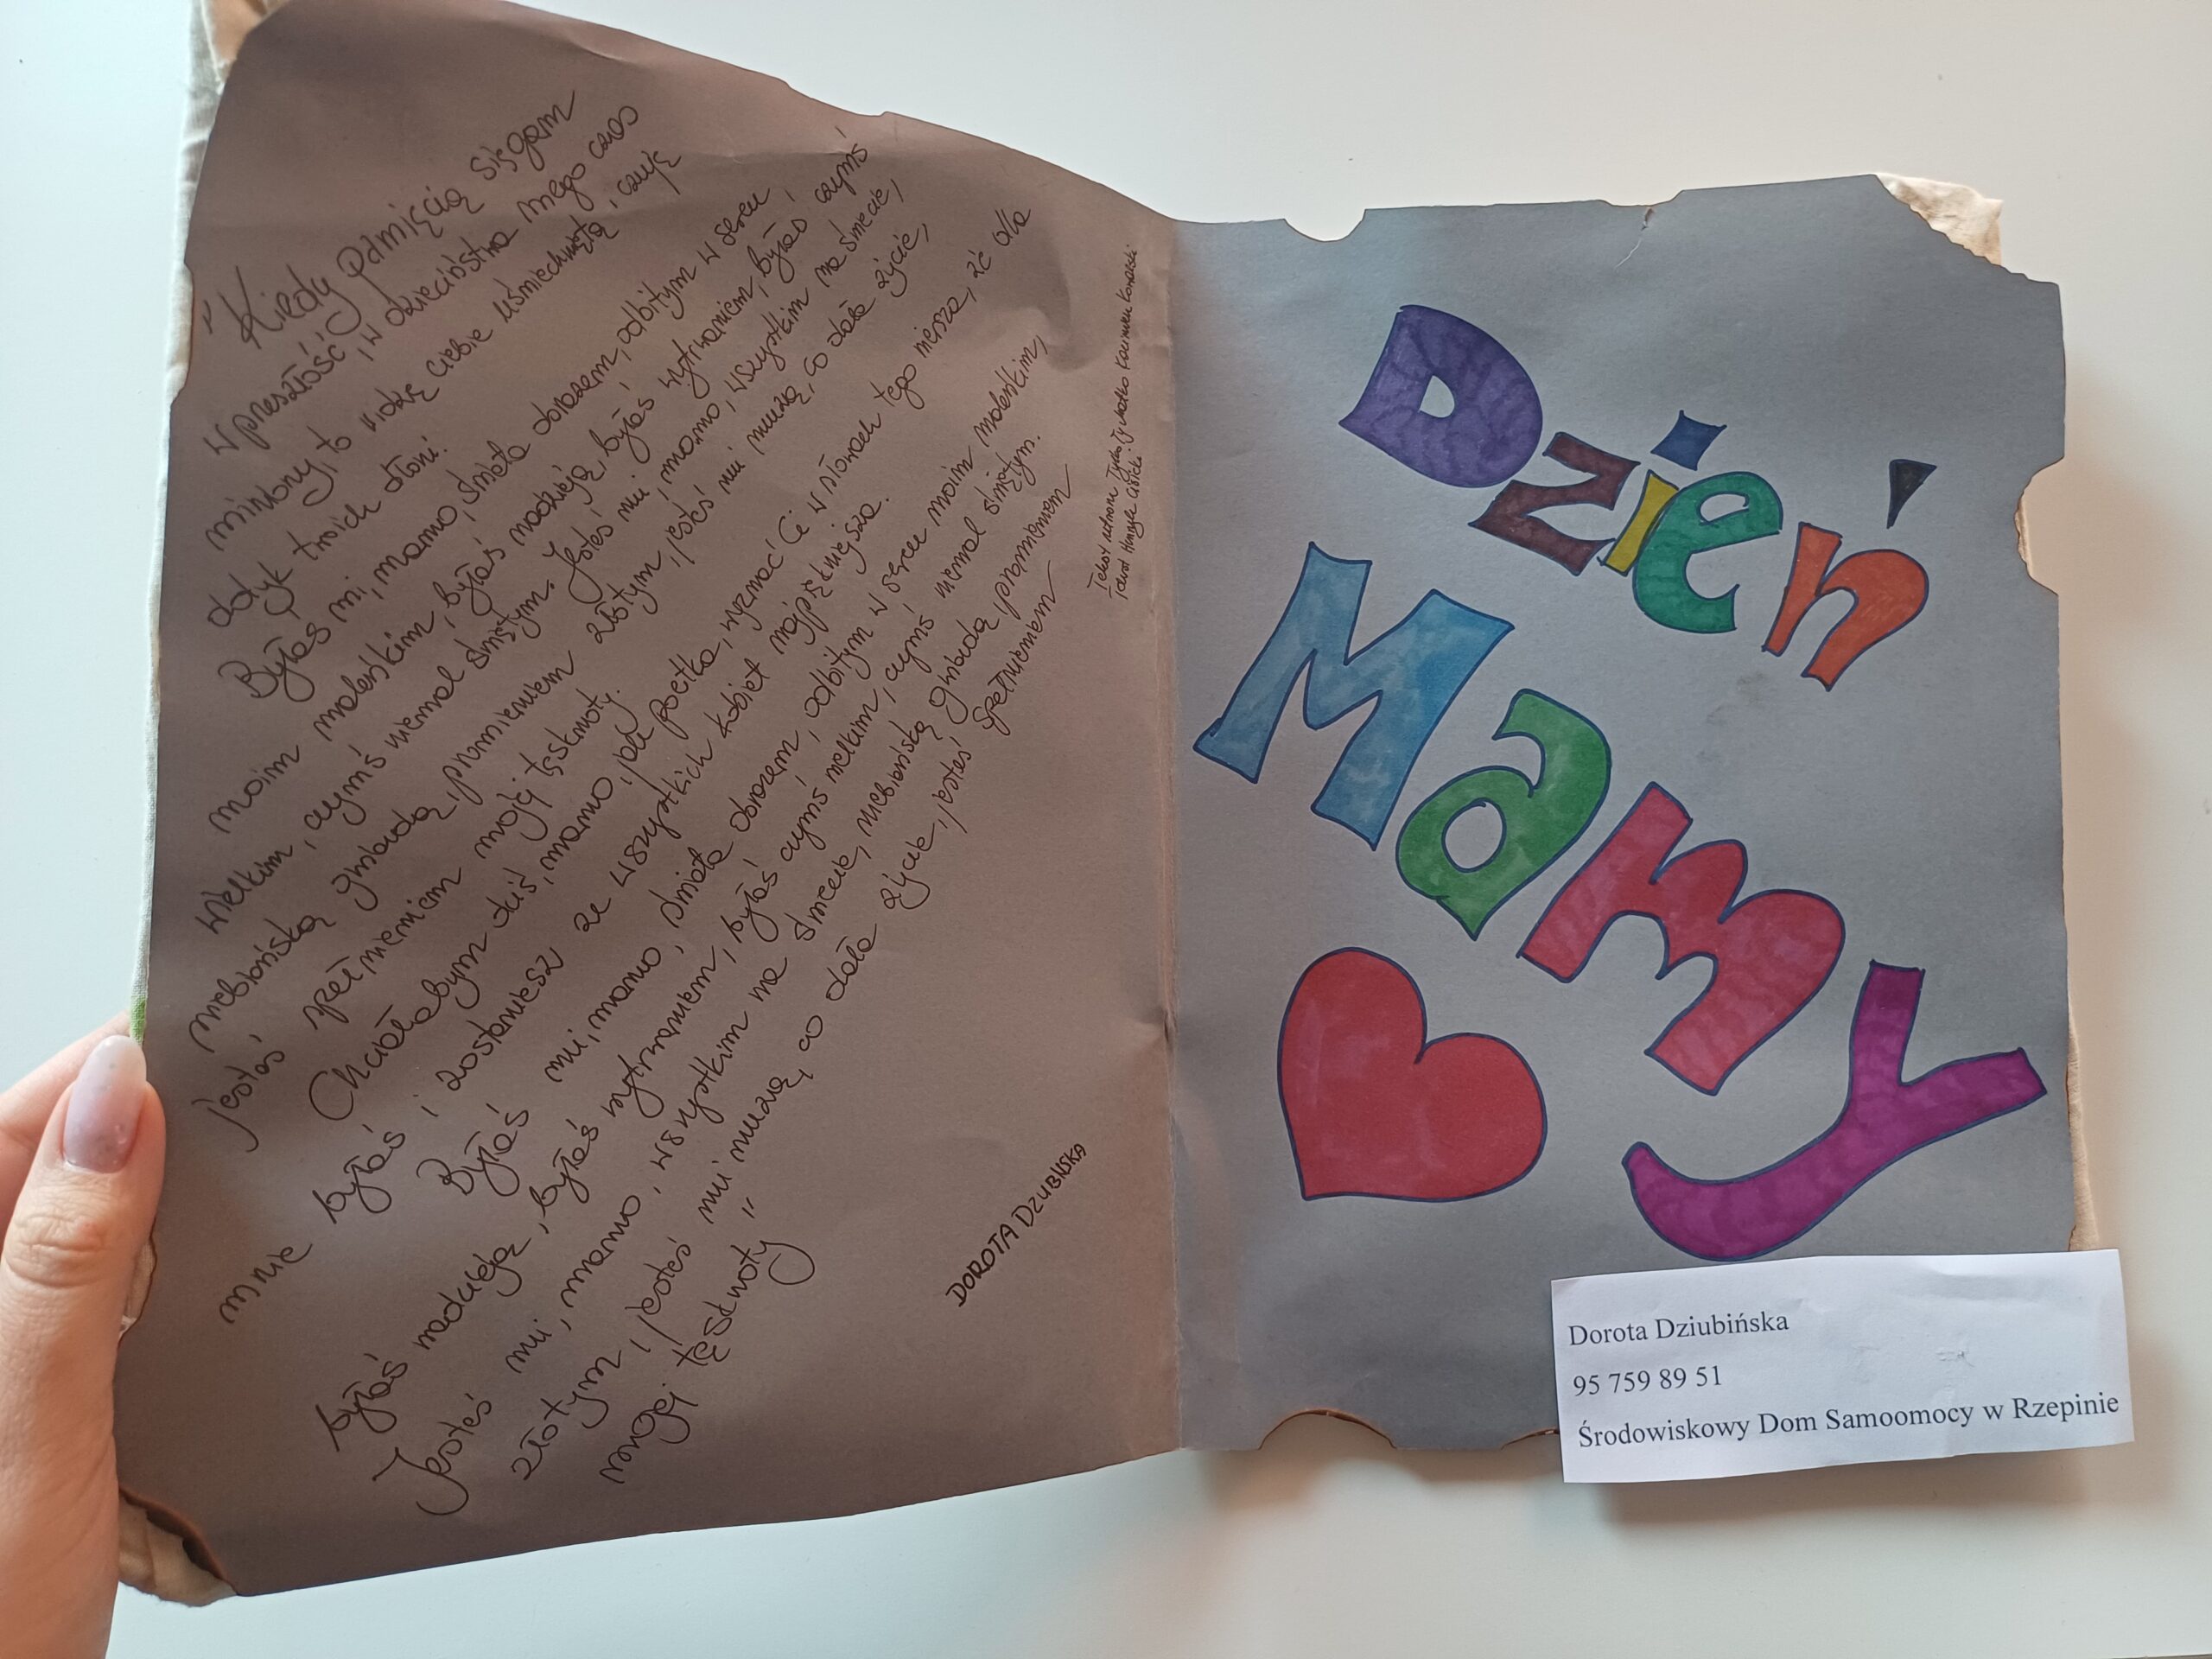 " Kiedy pamięcią sięgam
w przeszłość, w dzieciństwa mego czas
miniony, to widzę ciebie uśmiechniętą i czuję
dotyk twoich dłoni.
Byłaś mi, mamo, świata obrazem, odbitym w sercu
moim maleńkim, byłaś nadzieją, byłaś wytrwaniem, byłaś czymś
wielkim, czymś niemal świętym. Jesteś mi, mamo, wszystkim na świecie,
niebiańską gwiazdą, promieniem złotym, jesteś mi muzą, co dała życie,
jesteś spełnieniem mojej tęsknoty.
Chciałabym dziś, mamo, jak poetka, wyznać Ci w słowach tego wiersza, że dla
mnie byłaś i zostaniesz ze wszystkich kobiet najpiękniejsza.
Byłaś mi, mamo, świata obrazem, odbitym w sercu moim maleńkim,
byłaś nadzieją, byłaś wytrwaniem, byłaś czymś wielkim, czymś niemal świętym.
Jesteś mi, mamo, wszystkim na świecie, niebiańską gwiazdą, promieniem
złotym, jesteś mi muzą, co dała życie, jesteś spełnieniem
mojej tęsknoty "
Tekst
DOROTA DZIUBIŃSKA
Dzień
Mamy
Dorota Dziubińska
95 759 89 51
Środowiskowy Dom Samoomocy w Rzepinie